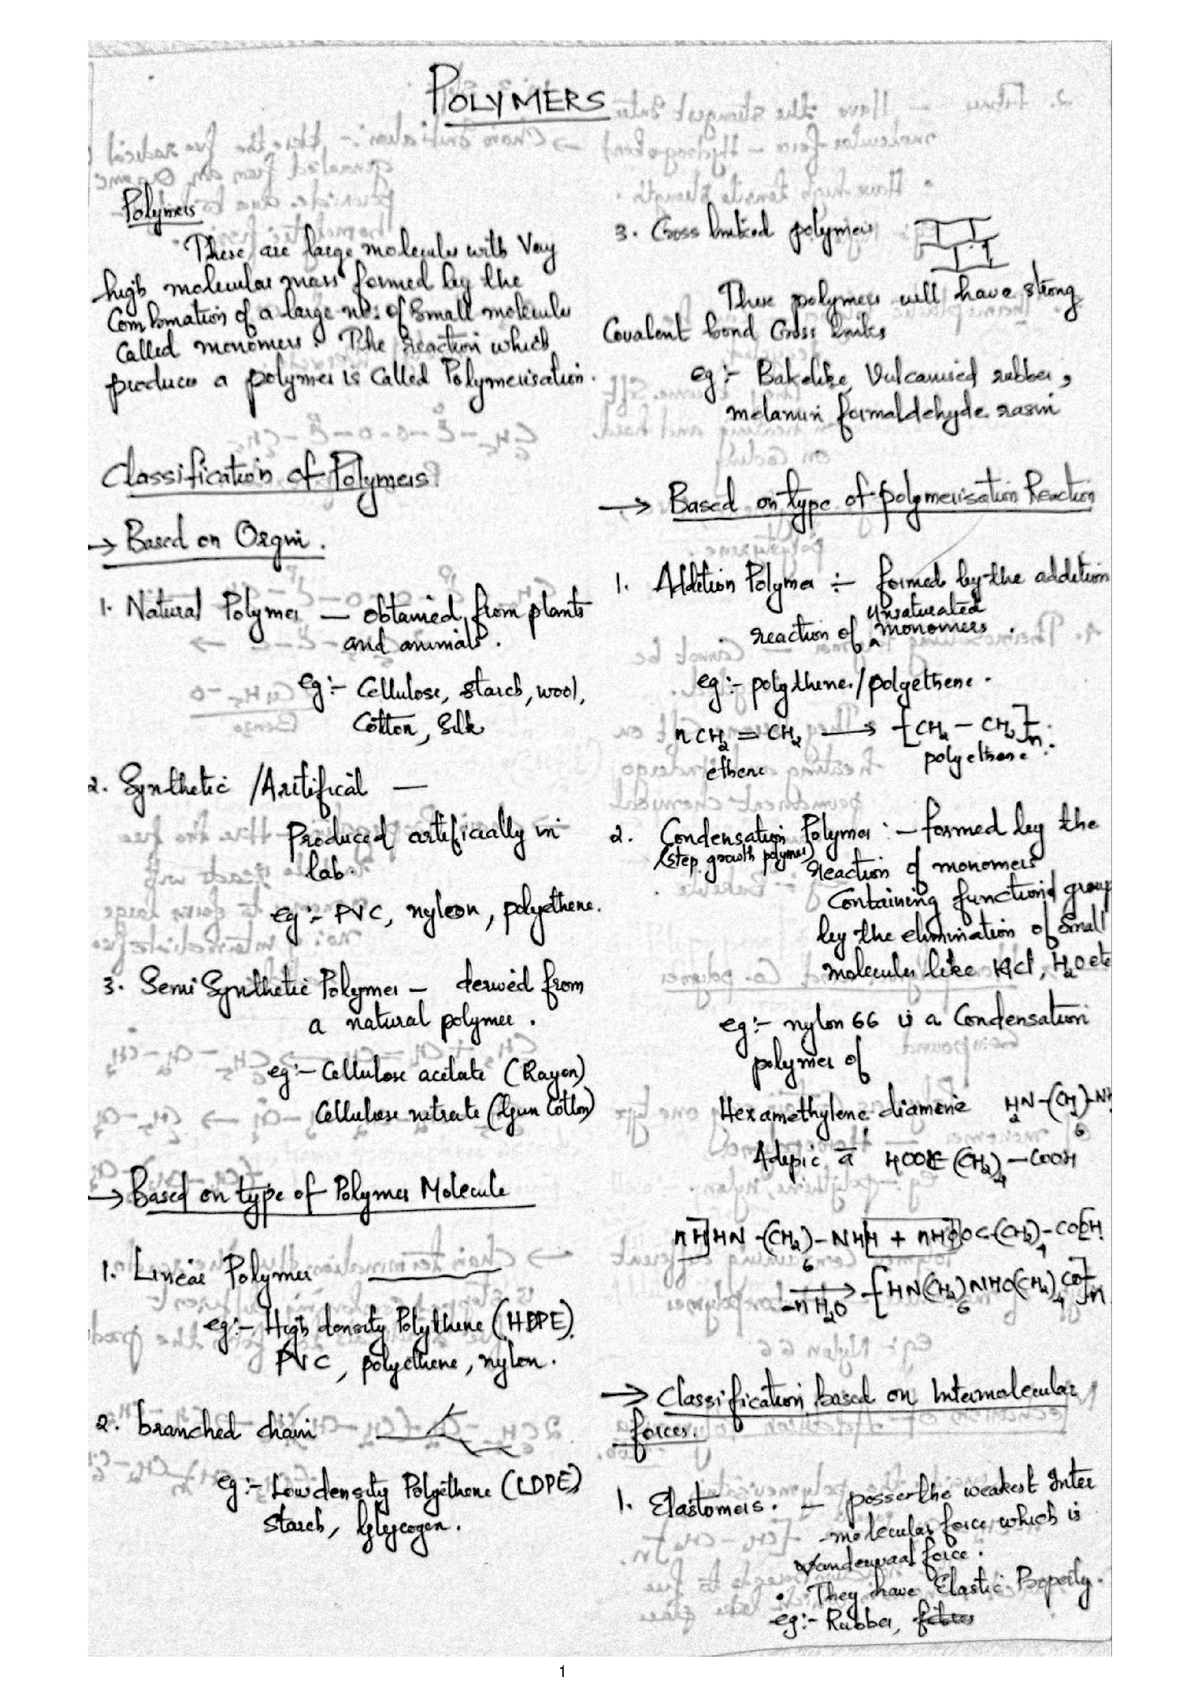 POLYMERS
Polymers
These are large molecules with Very
high molecular mass formed by the
Combination of a large no: of Small molecules
Called monomers. The reaction which
produces a polymer is Called Polymerisation.
Classification of Polymers
→ Based on Orgin.
1. Natural Polymer — obtained from plants
and animals.
eg:- Cellulose, starch, wool,
Cotton, Silk
2. Synthetic /Aritifical —
Produced artificially in
lab.
eg:- PVC, nyleon, polyethene.
3. Semi Synthetic Polymer — derived from
a natural polymer.
eg:- Cellulose acetate (Rayon)
Cellulose nitrate (Gun Cotton)
→ Based on type of Polymer Molecule
1. Linear Polymer
eg:- High density Polythene (HDPE)
PVC, polyethene, nylon.
2. branched chain
eg:- Low density Polyethene (LDPE)
Starch, Glycogen.
3. Cross linked polymers
These polymers will have strong
Covalent bond Cross links
eg:- Bakelike, Vulcanised rubber,
melamin formaldehyde rasin
→ Based on type of polymerisation Reaction
1. Addition Polymer :- formed by the addition
reaction of unsaturated monomers.
eg:- polythene./polyethene.
nCH2 = CH2 → [CH2 — CH2]n.
ethene polyethene
2. Condensation Polymer :- formed by the
(step growth polymer) reaction of monomers
Containing functional group
by the elimination of Small
molecules like HCl, H2O etc
eg:- nylon 66 is a Condensation
polymer of
Hexamethylene diamene H2N-(CH2)6-NH
Adepic a HOOC(CH2)4—COOH
nH HN-(CH2)6-NHH + nHOOC-(CH2)4-COOH
-nH2O → [HN(CH2)6NHO(CH2)4CO]n
→ Classification based on Intermolecular
forces.
1. Elastomers. — posses the weakest Inter
molecular force which is
Vanderwaal force.
• They have Elastic Property.
eg:- Rubber,